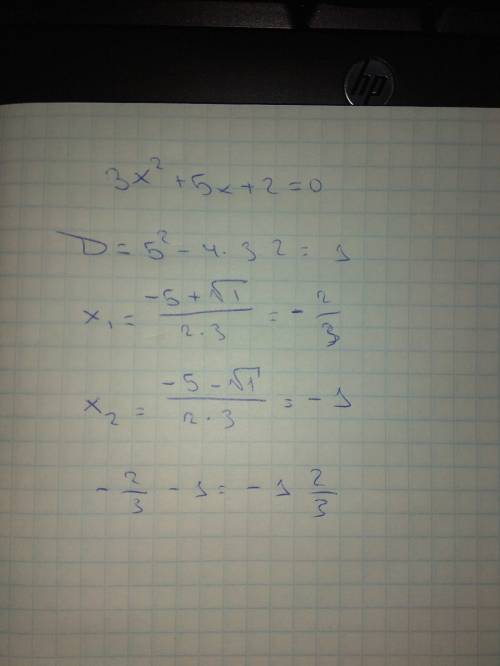 hp
3x² + 5x + 2 = 0
D = 5² - 4 · 3 2 = 1
x₁ = (-5 + √1) / (2 · 3) = - 2/3
x₂ = (-5 - √1) / (2 · 3) = - 1
- 2/3 - 1 = - 1 2/3